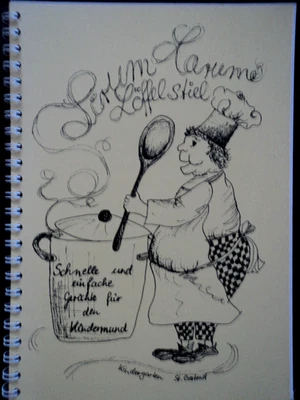 Sirum Larum
Löffelstiel
Schnelle und
einfache
Gerichte für
den
Kindermund
Kindergarten St.